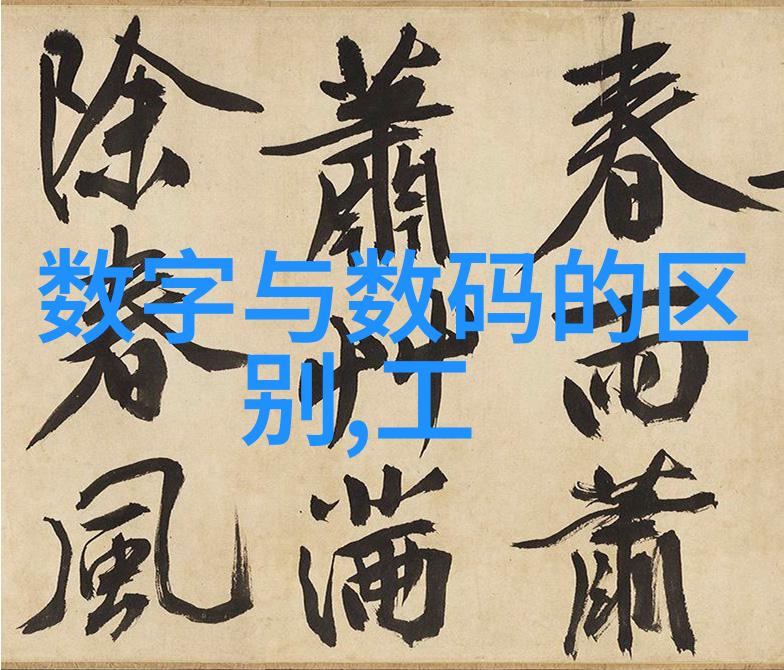 数字与数码的区
别,工
春雨蕭
蕭艸滿
除春風